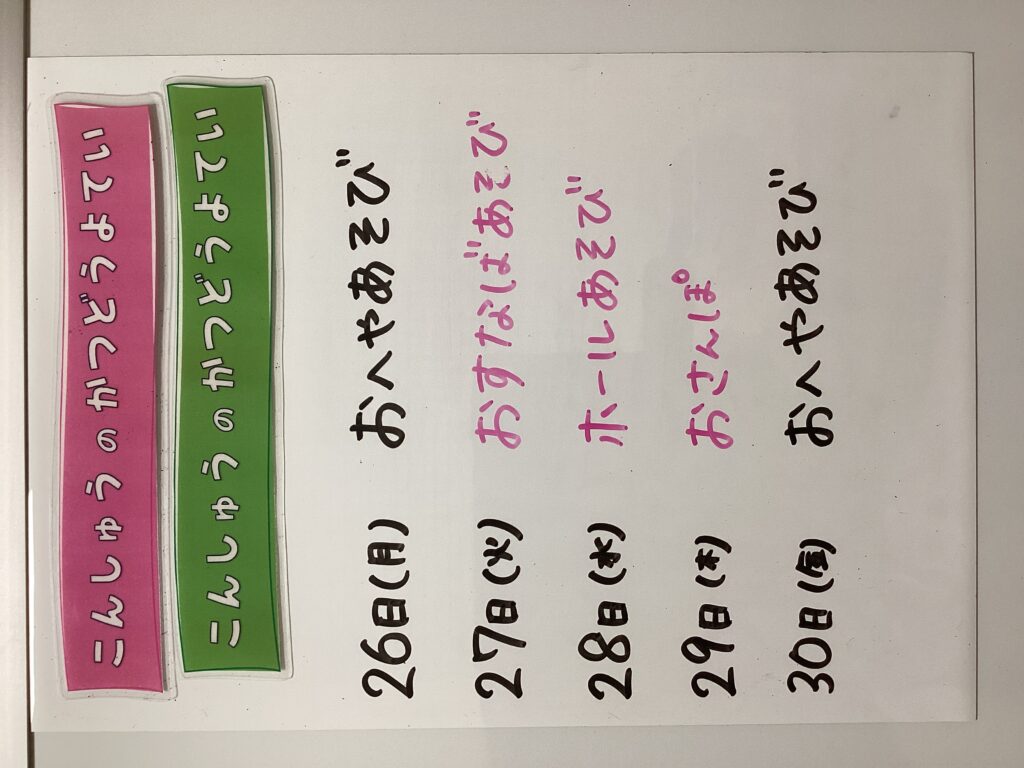 こんしゅうのかつどうよてい
こんしゅうのかつどうよてい
26日(月) おへやあそび
27日(火) おすなばあそび
28日(水) ホールあそび
29日(木) おさんぽ
30日(金) おへやあそび